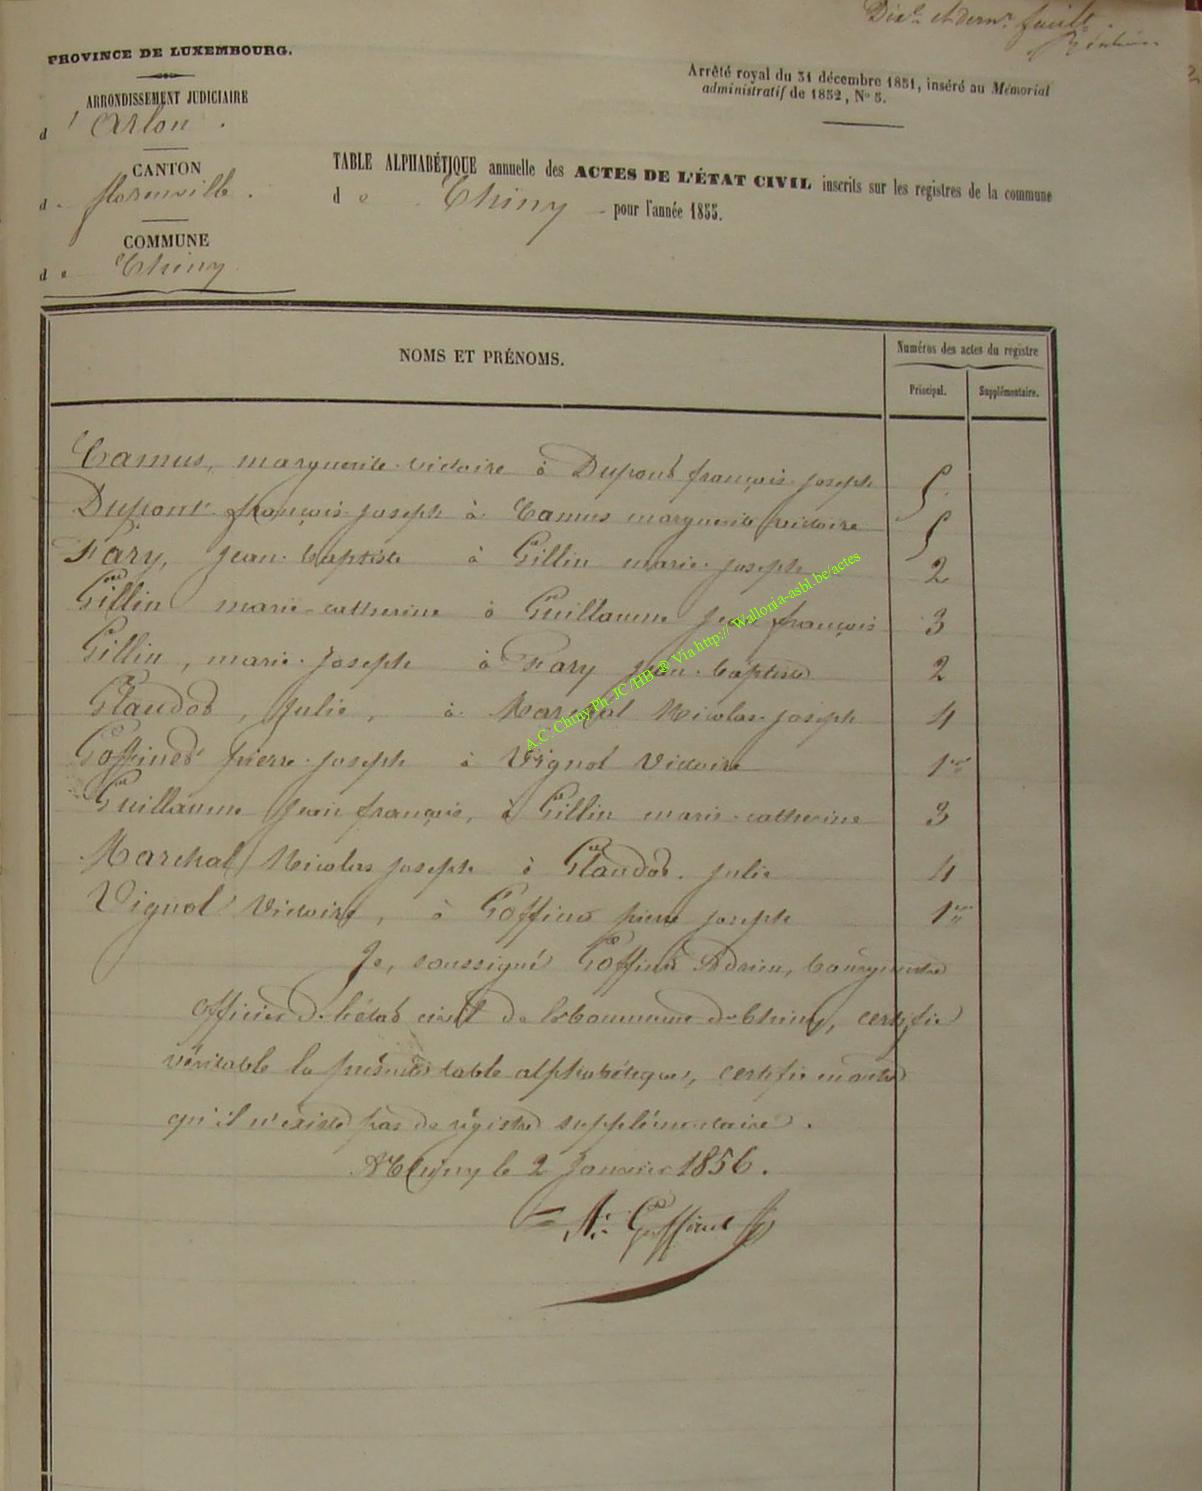 Dix.e et dern.r feuillt.
PROVINCE DE LUXEMBOURG.
ARRONDISSEMENT JUDICIAIRE
d'Arlon.
CANTON
de florenville.
COMMUNE
de Chiny
Arrêté royal du 31 décembre 1851, inséré au Mémorial
administratif de 1852, N° 5.
TABLE ALPHABÉTIQUE annuelle des ACTES DE L'ÉTAT CIVIL inscrits sur les registres de la commune
de Chiny pour l'année 1855.
NOMS ET PRÉNOMS.
Numéros des actes du registre
Principal. Supplémentaire.
Camus, marguerite victoire à Dupont françois joseph 5.
Dupont françois joseph à Camus marguerite victoire 5
Fary, jean baptiste à Gillin marie joseph 2
Gillin marie-catherine à Guillaume jean françois 3
Gillin, marie joseph à Fary jean baptiste 2
Glaudot, julie, à Marchal Nicolas joseph 4
Goffinet pierre joseph à Vignol Victoire 1er
Guillaume jean françois, à Gillin marie-catherine 3
Marchal Nicolas joseph à Glaudot julie 4
Vignol Victoire, à Goffinet pierre joseph 1er
Je, soussigné Goffinet Adrien, bourgmestre
officier de l'état civil de la commune de Chiny, certifie
véritable la présente table alphabétique, certifie ensuite
qu'il n'existe pas de régistre supplémentaire.
A Chiny le 2 Janvier 1856.
A. Goffinet
A.C. Chiny Ph. JC/HB ® Via http:// Wallonia-asbl.be/actes